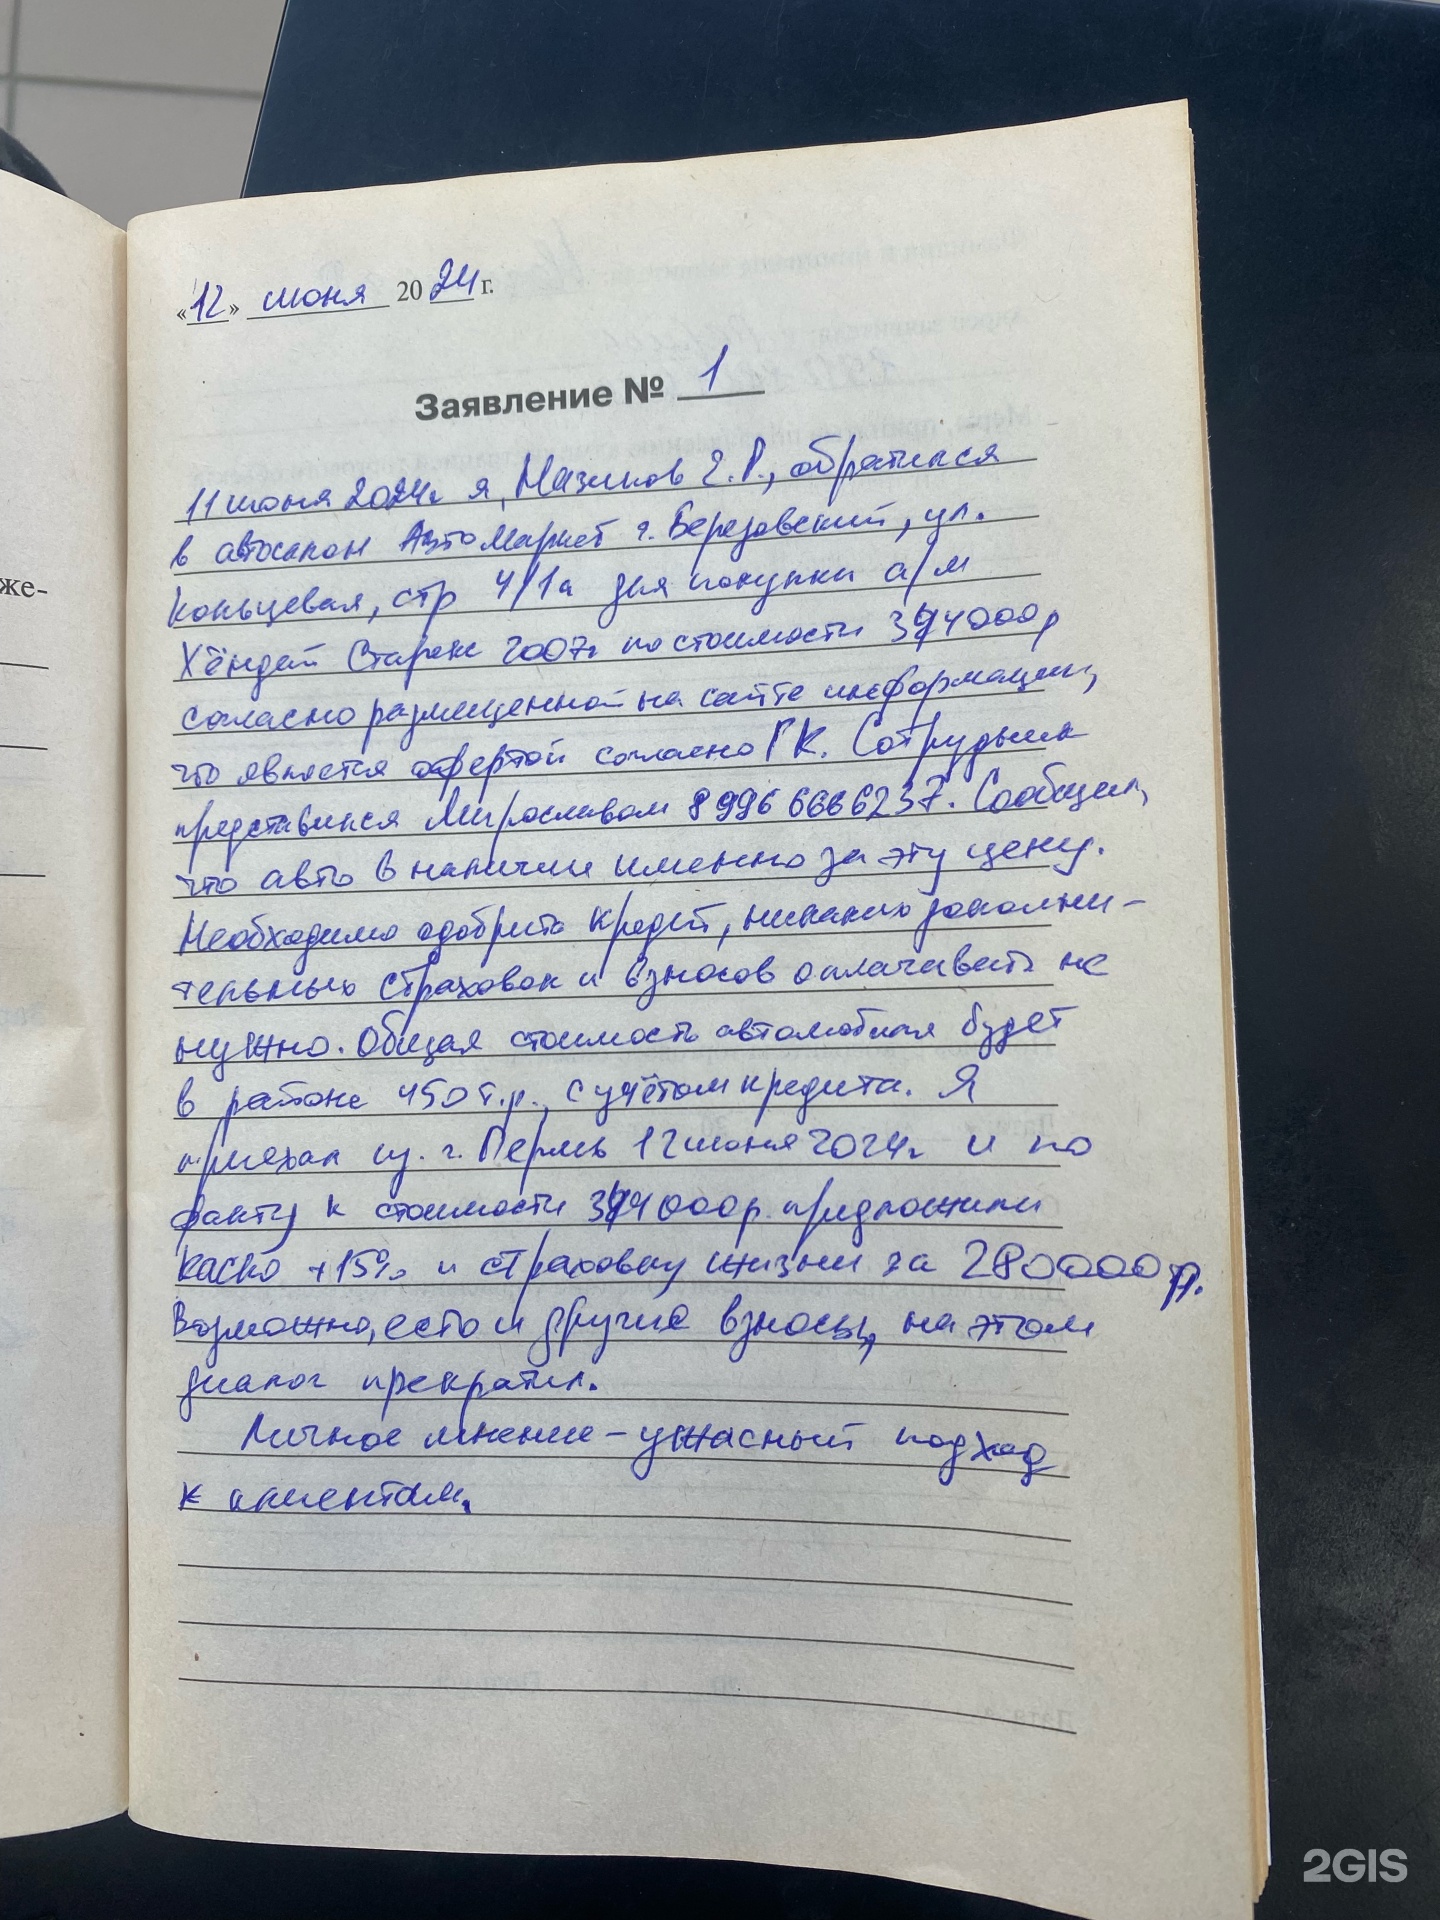 «12» июня 2024 г.
Заявление № 1
11 июня 2024г я, Мазилов Е.Р., обратился
в автосалон АвтоМаркет г. Березовский, ул.
Кольцевая, стр 4/1а для покупки а/м
Хёндай Старекс 2007г по стоимости 394000р
согласно размещенной на сайте информации,
что является офертой согласно ГК. Сотрудник
представился Мирославом 8 996 6666237. Сообщил,
что авто в наличии именно за эту цену.
Необходимо одобрить кредит, никаких дополни-
тельных страховок и взносов оплачивать не
нужно. Общая стоимость автомобиля будет
в районе 450 т.р., с учётом кредита. Я
приехал из г. Пермь 12 июня 2024г и по
факту к стоимости 394000р. предложили
каско +15% и страховку жизни за 280000р.
Возможно, есть и другие взносы, на этом
диалог прекратил.
Личное мнение – ужасный подход
к клиентам.
же-
2GIS